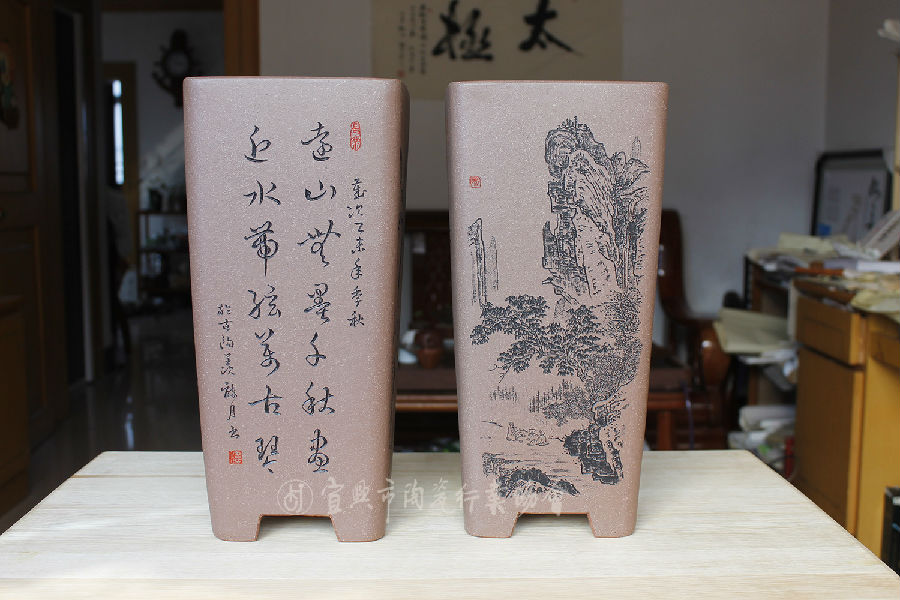 太極
歲次乙未年季秋
遠山無墨千秋畫
近水無弦萬古琴
於古陽羨 月書
宜興市陶瓷行業協會